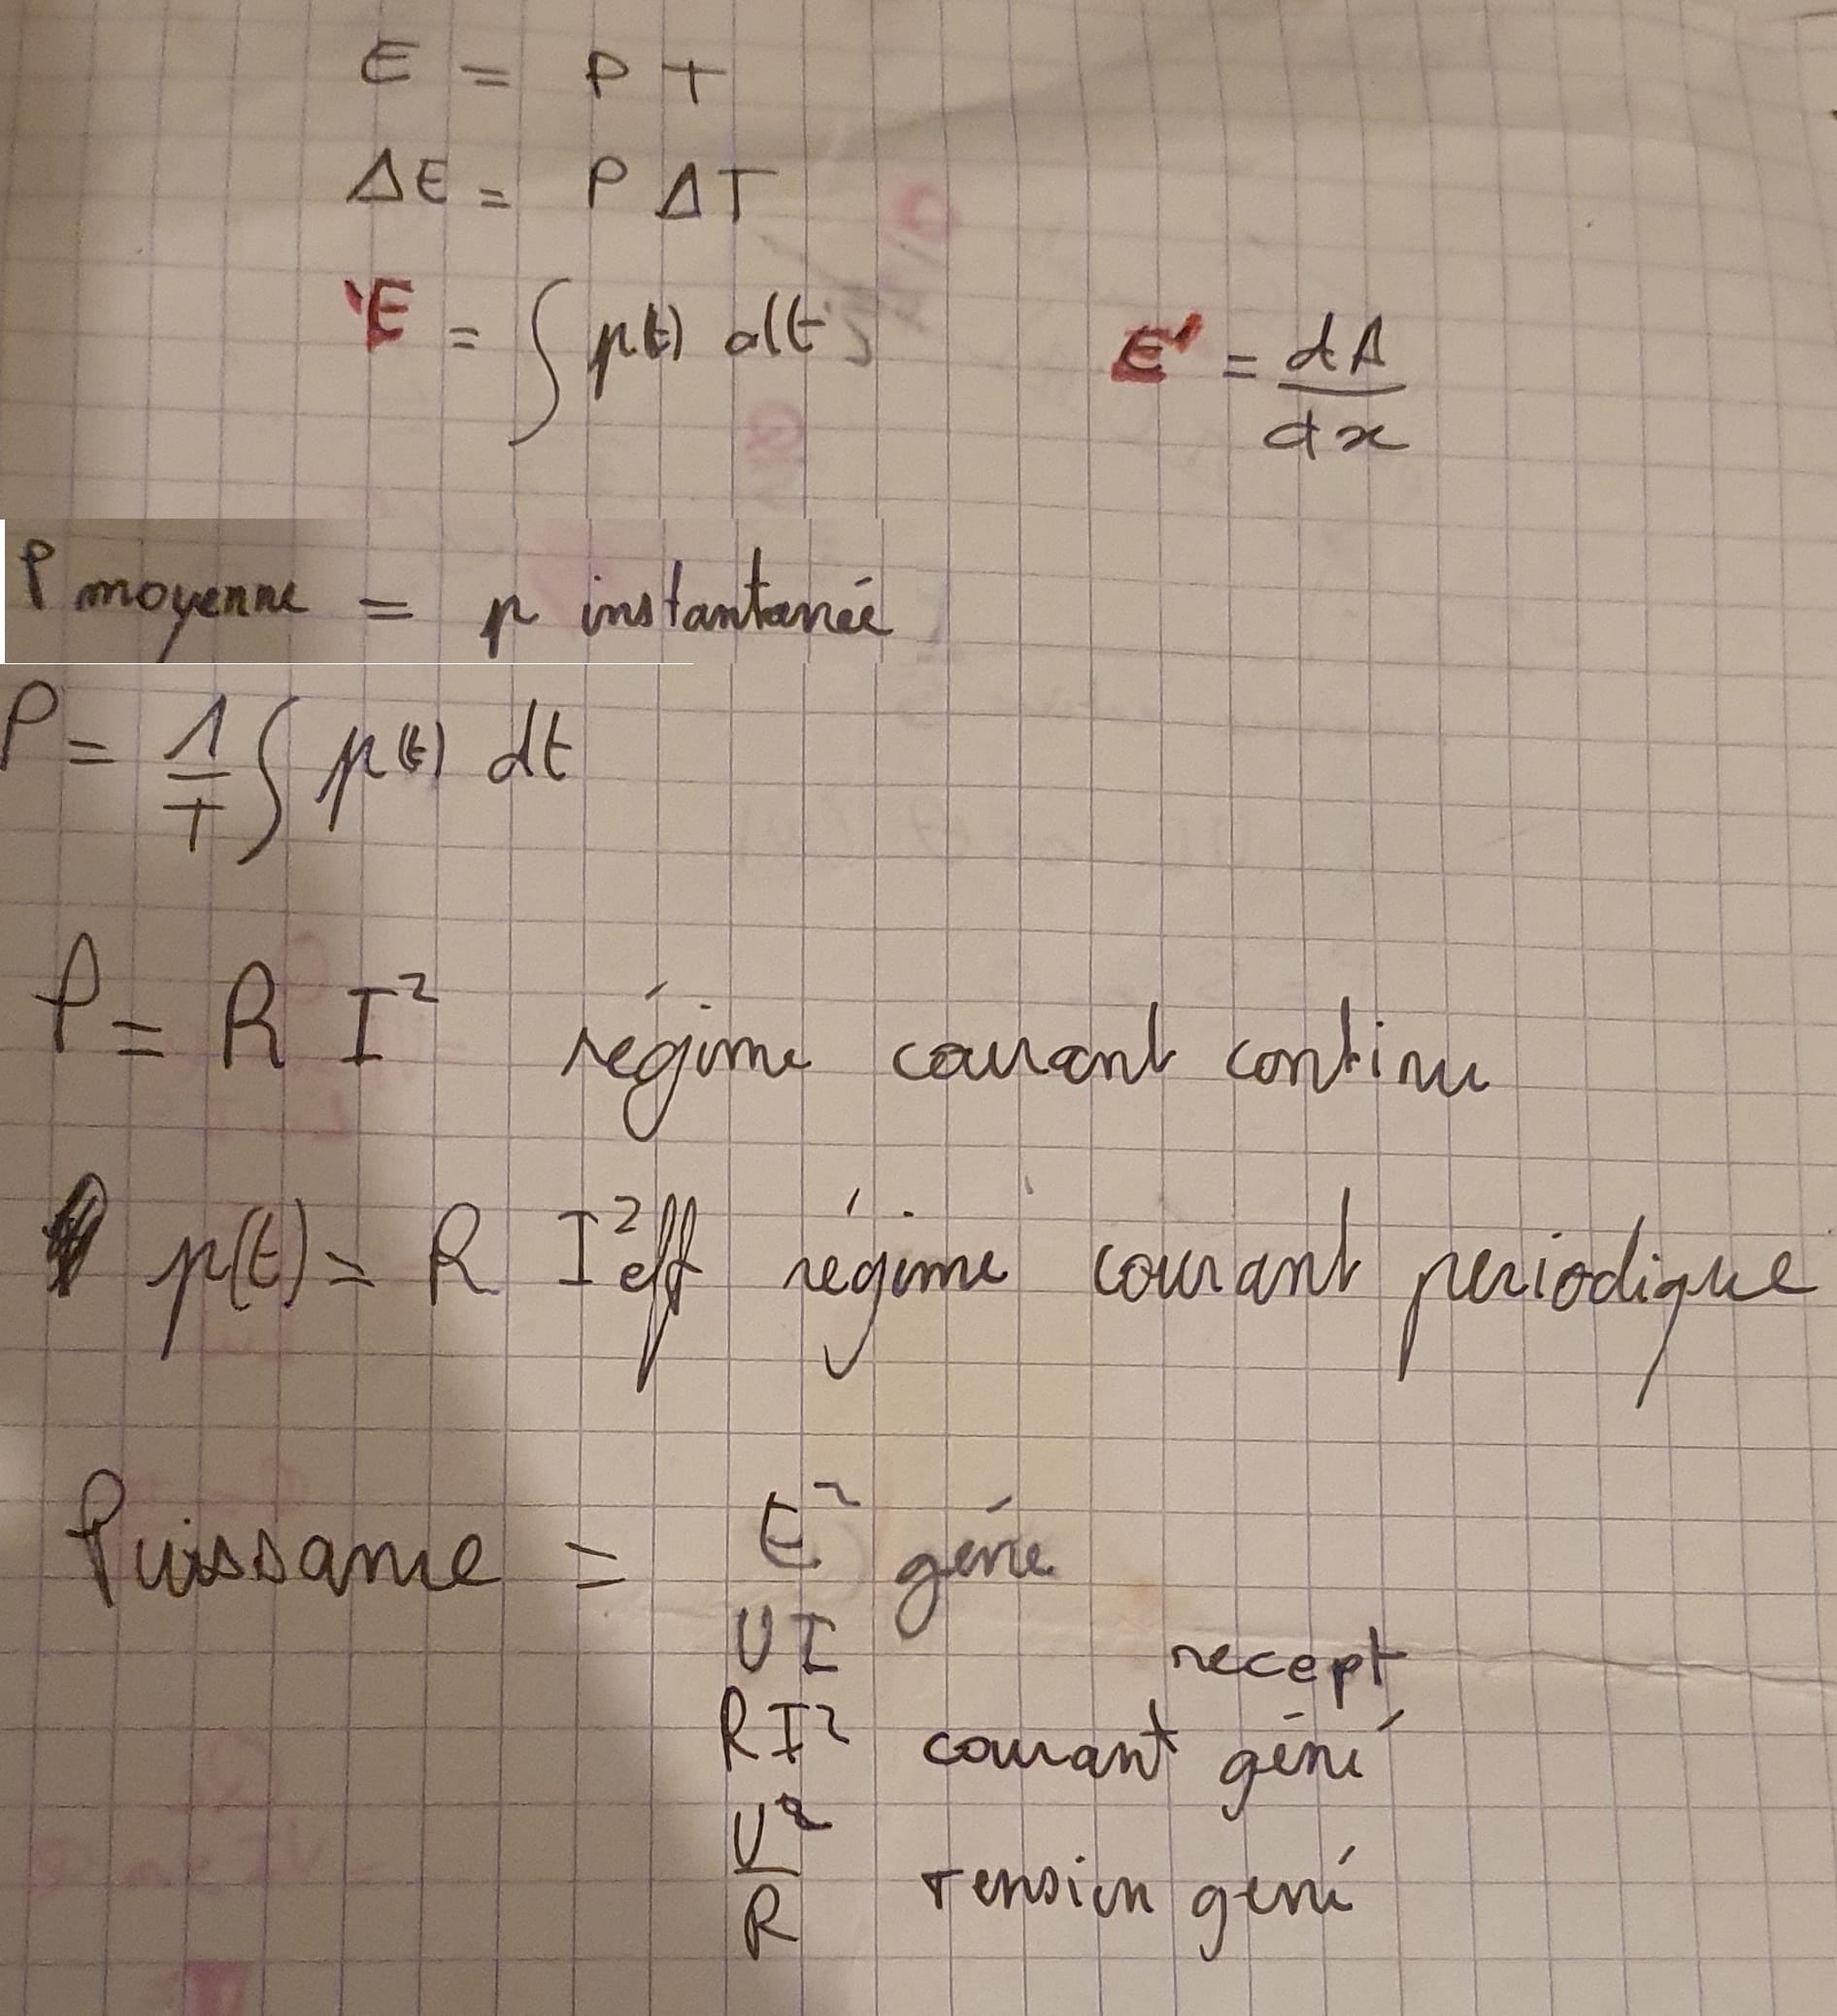 E = P T
ΔE = P ΔT
'E = ∫ p(t) dt
E' = dA / dx
P moyenne = p instantanée
P = 1/T ∫ p(t) dt
P = R I² régime courant continu
p(t) = R I²eff régime courant periodique
Puissance = E² géné
UI recept
RI² courant géné
U²/R Tension gené